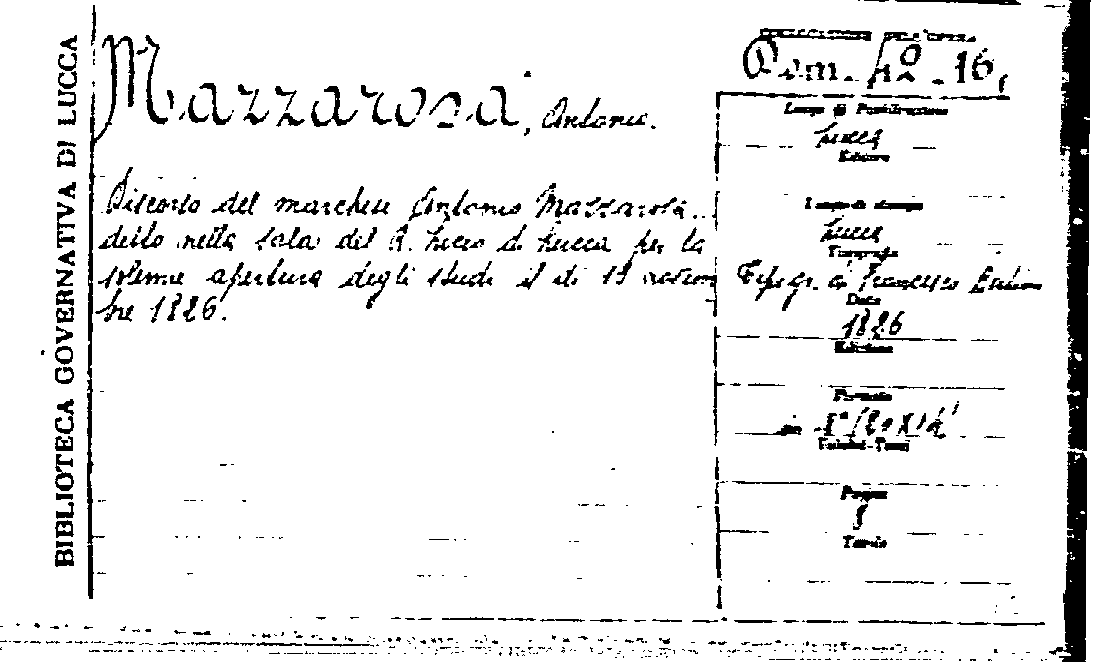 BIBLIOTECA GOVERNATIVA DI LUCCA
Mazzarosa, Antonio.
Discorso del marchese Antonio Mazzarosa...
detto nella sala del R. Liceo di Lucca per la
solenne apertura degli studi il dì 19 novem
bre 1826.
Luogo di Pubblicazione
Lucca
Editore
Luogo di stampa
Lucca
Tipografia
Tipogr. di Francesco
Data
1826
Edizione
Formato
in 8°
Volumi-Tomi
Pagine
8
Tavole